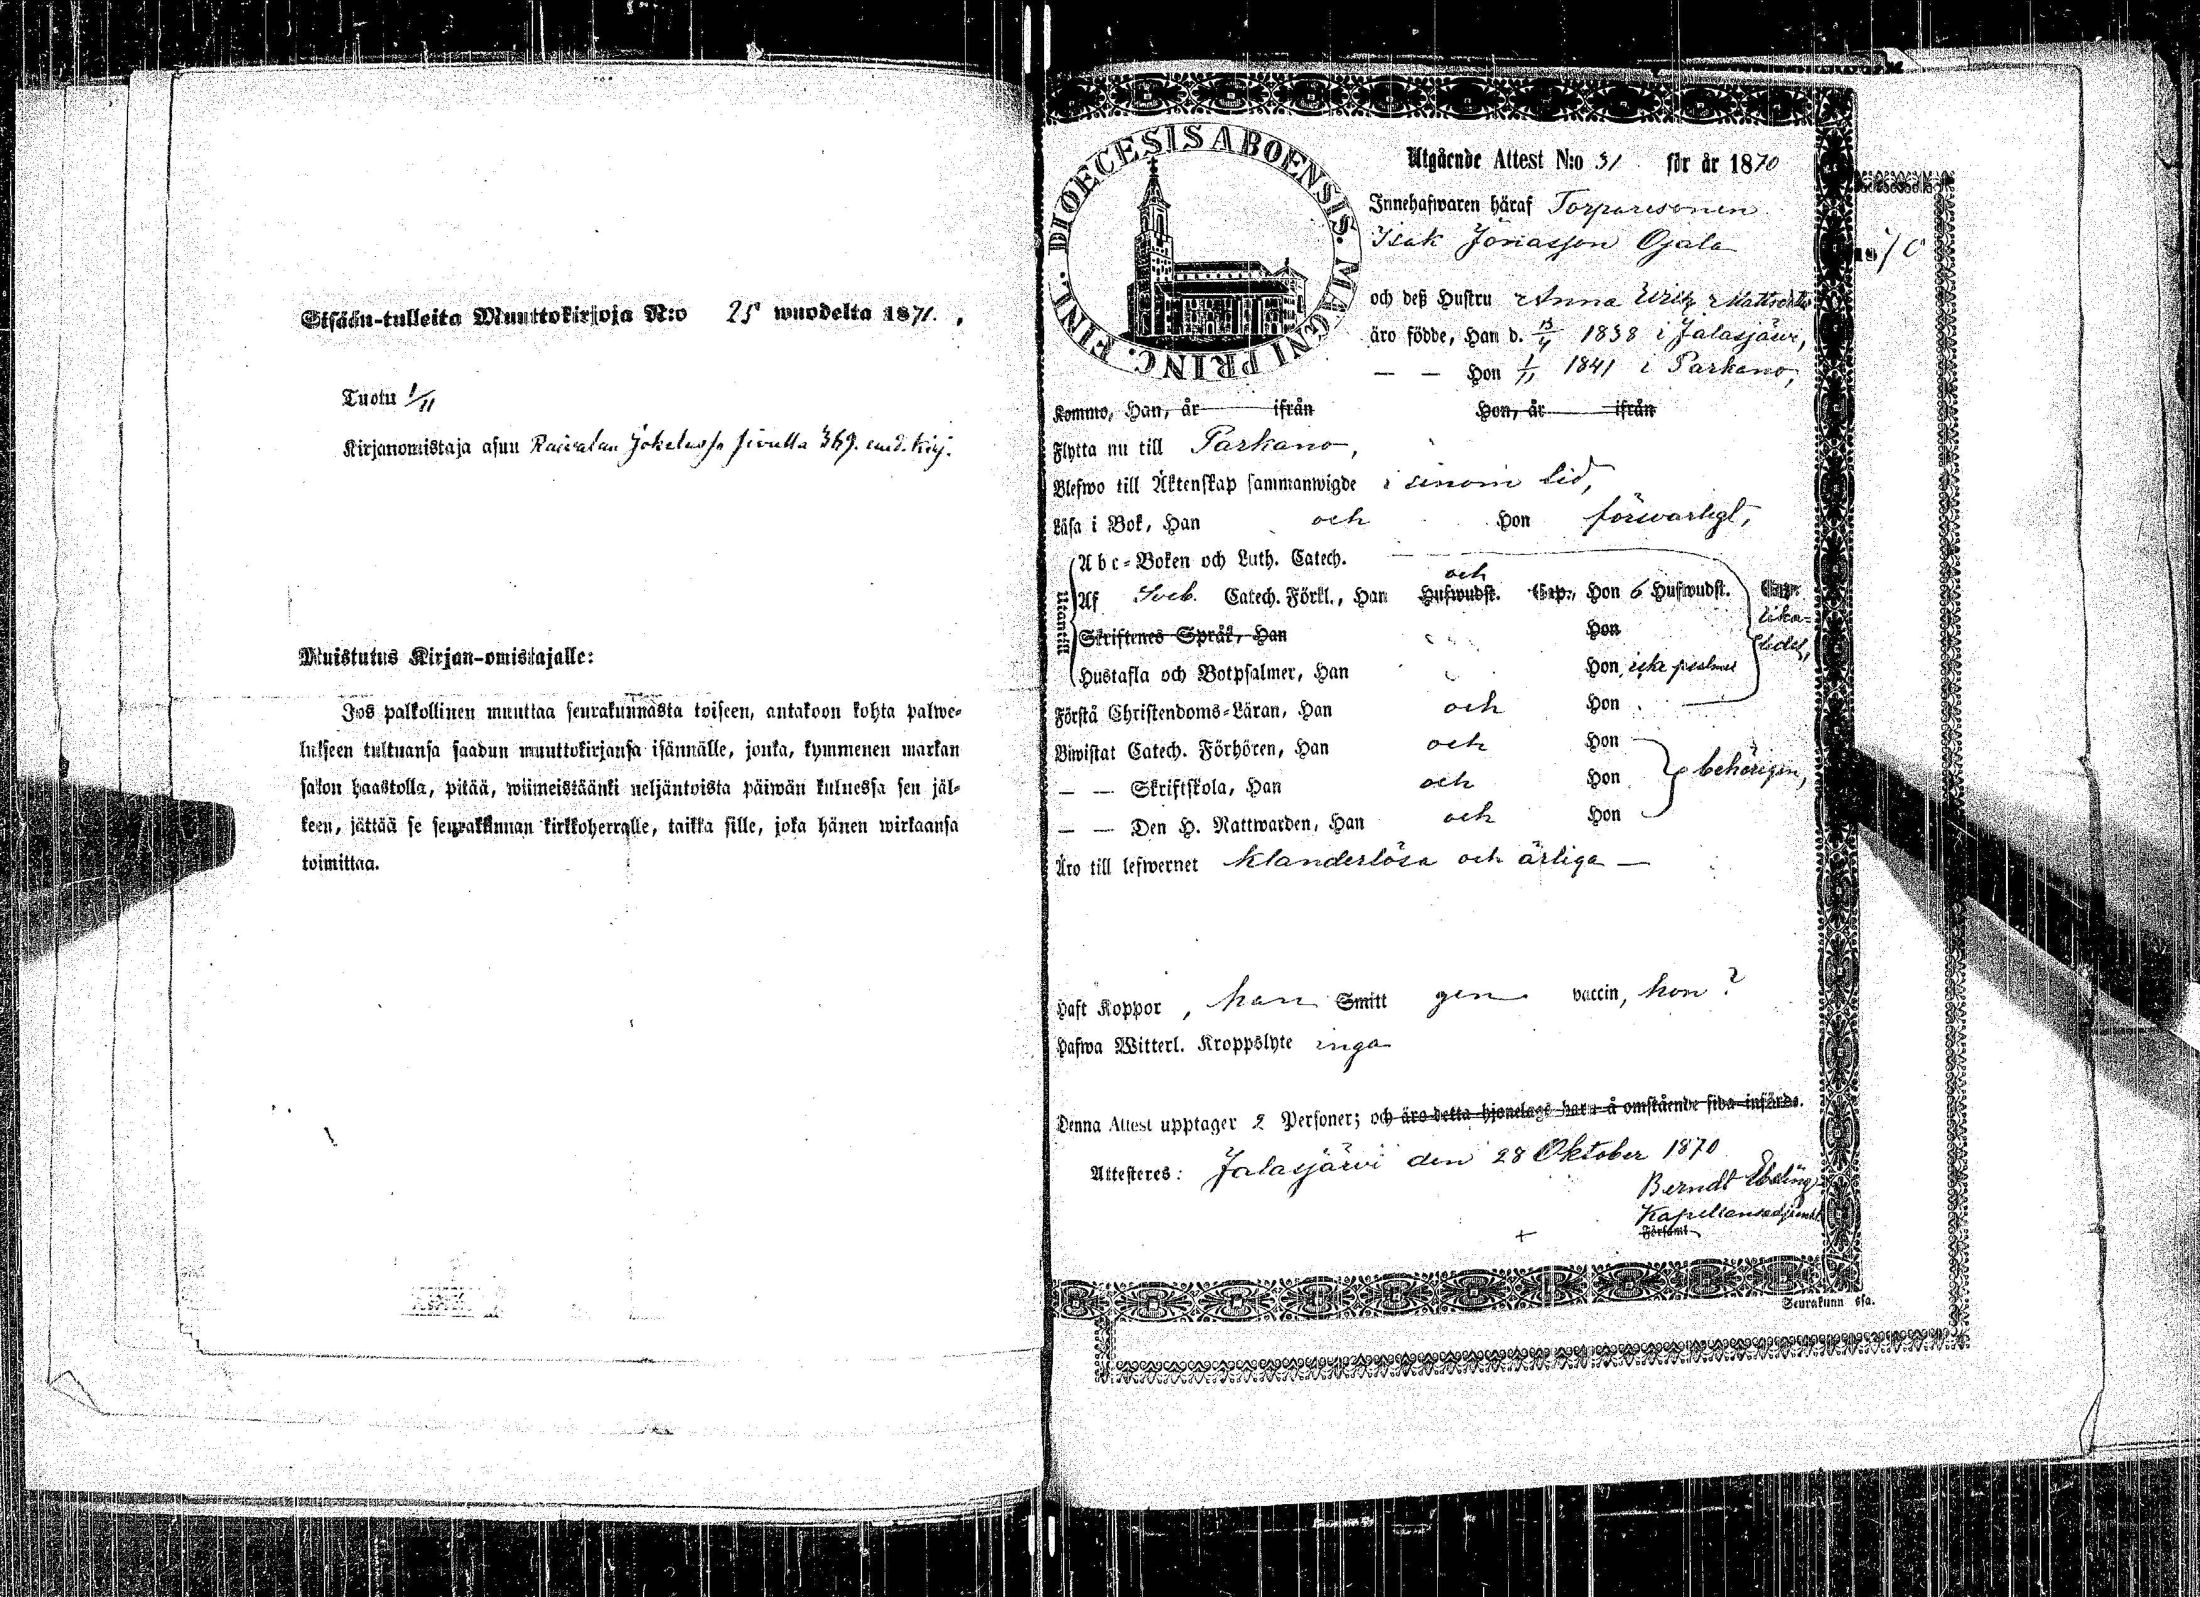 Sisään-tulleita Muuttokirjoja N:o 25 wuodelta 1871.
Tuotu 1/11
Kirjanomistaja asuu Raiwalan Jokelassa sivulla 369. uud. kirj.
Muistutus Kirjan-omistajalle:
Jos palkollinen muuttaa seurakunnasta toiseen, antakoon kohta palwe-
lukseen tultuansa saadun muuttokirjansa isännälle, jonka, kymmenen markan
sakon haastolla, pitää, wiimeistäänki neljäntoista päiwän kuluessa sen jäl-
keen, jättää se seurakunnan kirkkoherralle, taikka sille, joka hänen wirkaansa
toimittaa.
DIOECESIS ABOENSIS. MAGNI PRINC. FINL.
Utgående Attest N:o 31 för år 1870
Innehafwaren häraf Torparesonen
Isak Jonasson Ojala
och deß Hustru Anna Ulrik Mattsdotter
äro födde, Han d. 13/4 1838 i Jalasjärwi,
— — Hon 1/11 1841 i Parkano,
Kommo, Han, år ifrån Hon, år ifrån
Flytta nu till Parkano,
Blefwo till Äktenskap sammanwigde i sinom tid,
Läsa i Bok, Han och Hon förswarligt,
Utantill
Abc-Boken och Luth. Catech.
Af Sveb. Catech. Förkl., Han Hufwudst. och Cap., Hon 6 Hufwudst. Cap.
lika-
ledes,
Skriftenes Språk, Han Hon
Hustafla och Botpsalmer, Han Hon icke psalmer
Förstå Christendoms-Läran, Han och Hon
Biwistat Catech. Förhören, Han och Hon
— — Skriftskola, Han och Hon behörigen,
— — Den H. Nattwarden, Han och Hon
Äro till lefwernet klanderlösa och ärliga —
Haft Koppor, han Smitt gen vaccin, hon?
Hafwa Witterl. Kroppslyte inga
Denna Attest upptager 2 Personer; och äro detta hjonelags barn å omstående sida införde.
Attesteres: Jalasjärvi den 28 Oktober 1870
Berndt Ebeling
Kapellansadjunkt
Församl.
Seurakunn ssa.